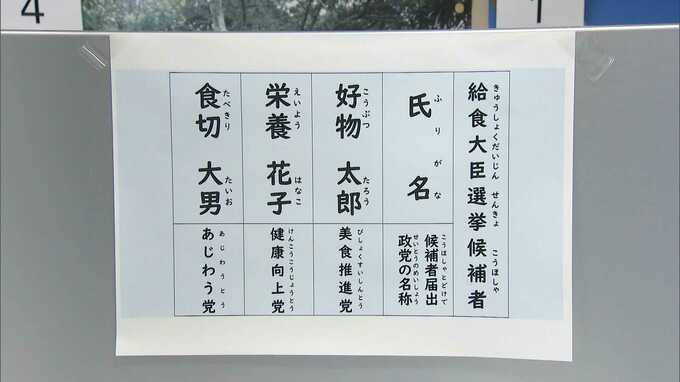 4
1
給食大臣選挙候補者
きゅうしょくだいじん せんきょ こうほしゃ
氏名
ふりがな
候補者届出
こうほしゃとどけで
政党の名称
せいとうのめいしょう
好物 太郎
こうぶつ たろう
美食推進党
びしょくすいしんとう
栄養 花子
えいよう はなこ
健康向上党
けんこうこうじょうとう
食切 大男
たべきり たいお
あじわう党
あじわうとう